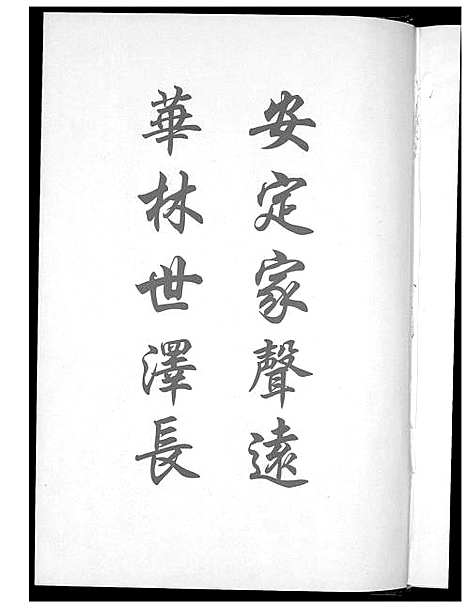 安定家聲遠
華林世澤長